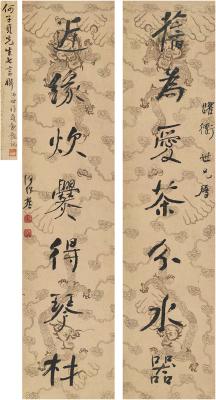 舊為愛茶分水器
躍衢世兄屬
近緣炊爨得琴材
何紹基
何子貞先生七言聯